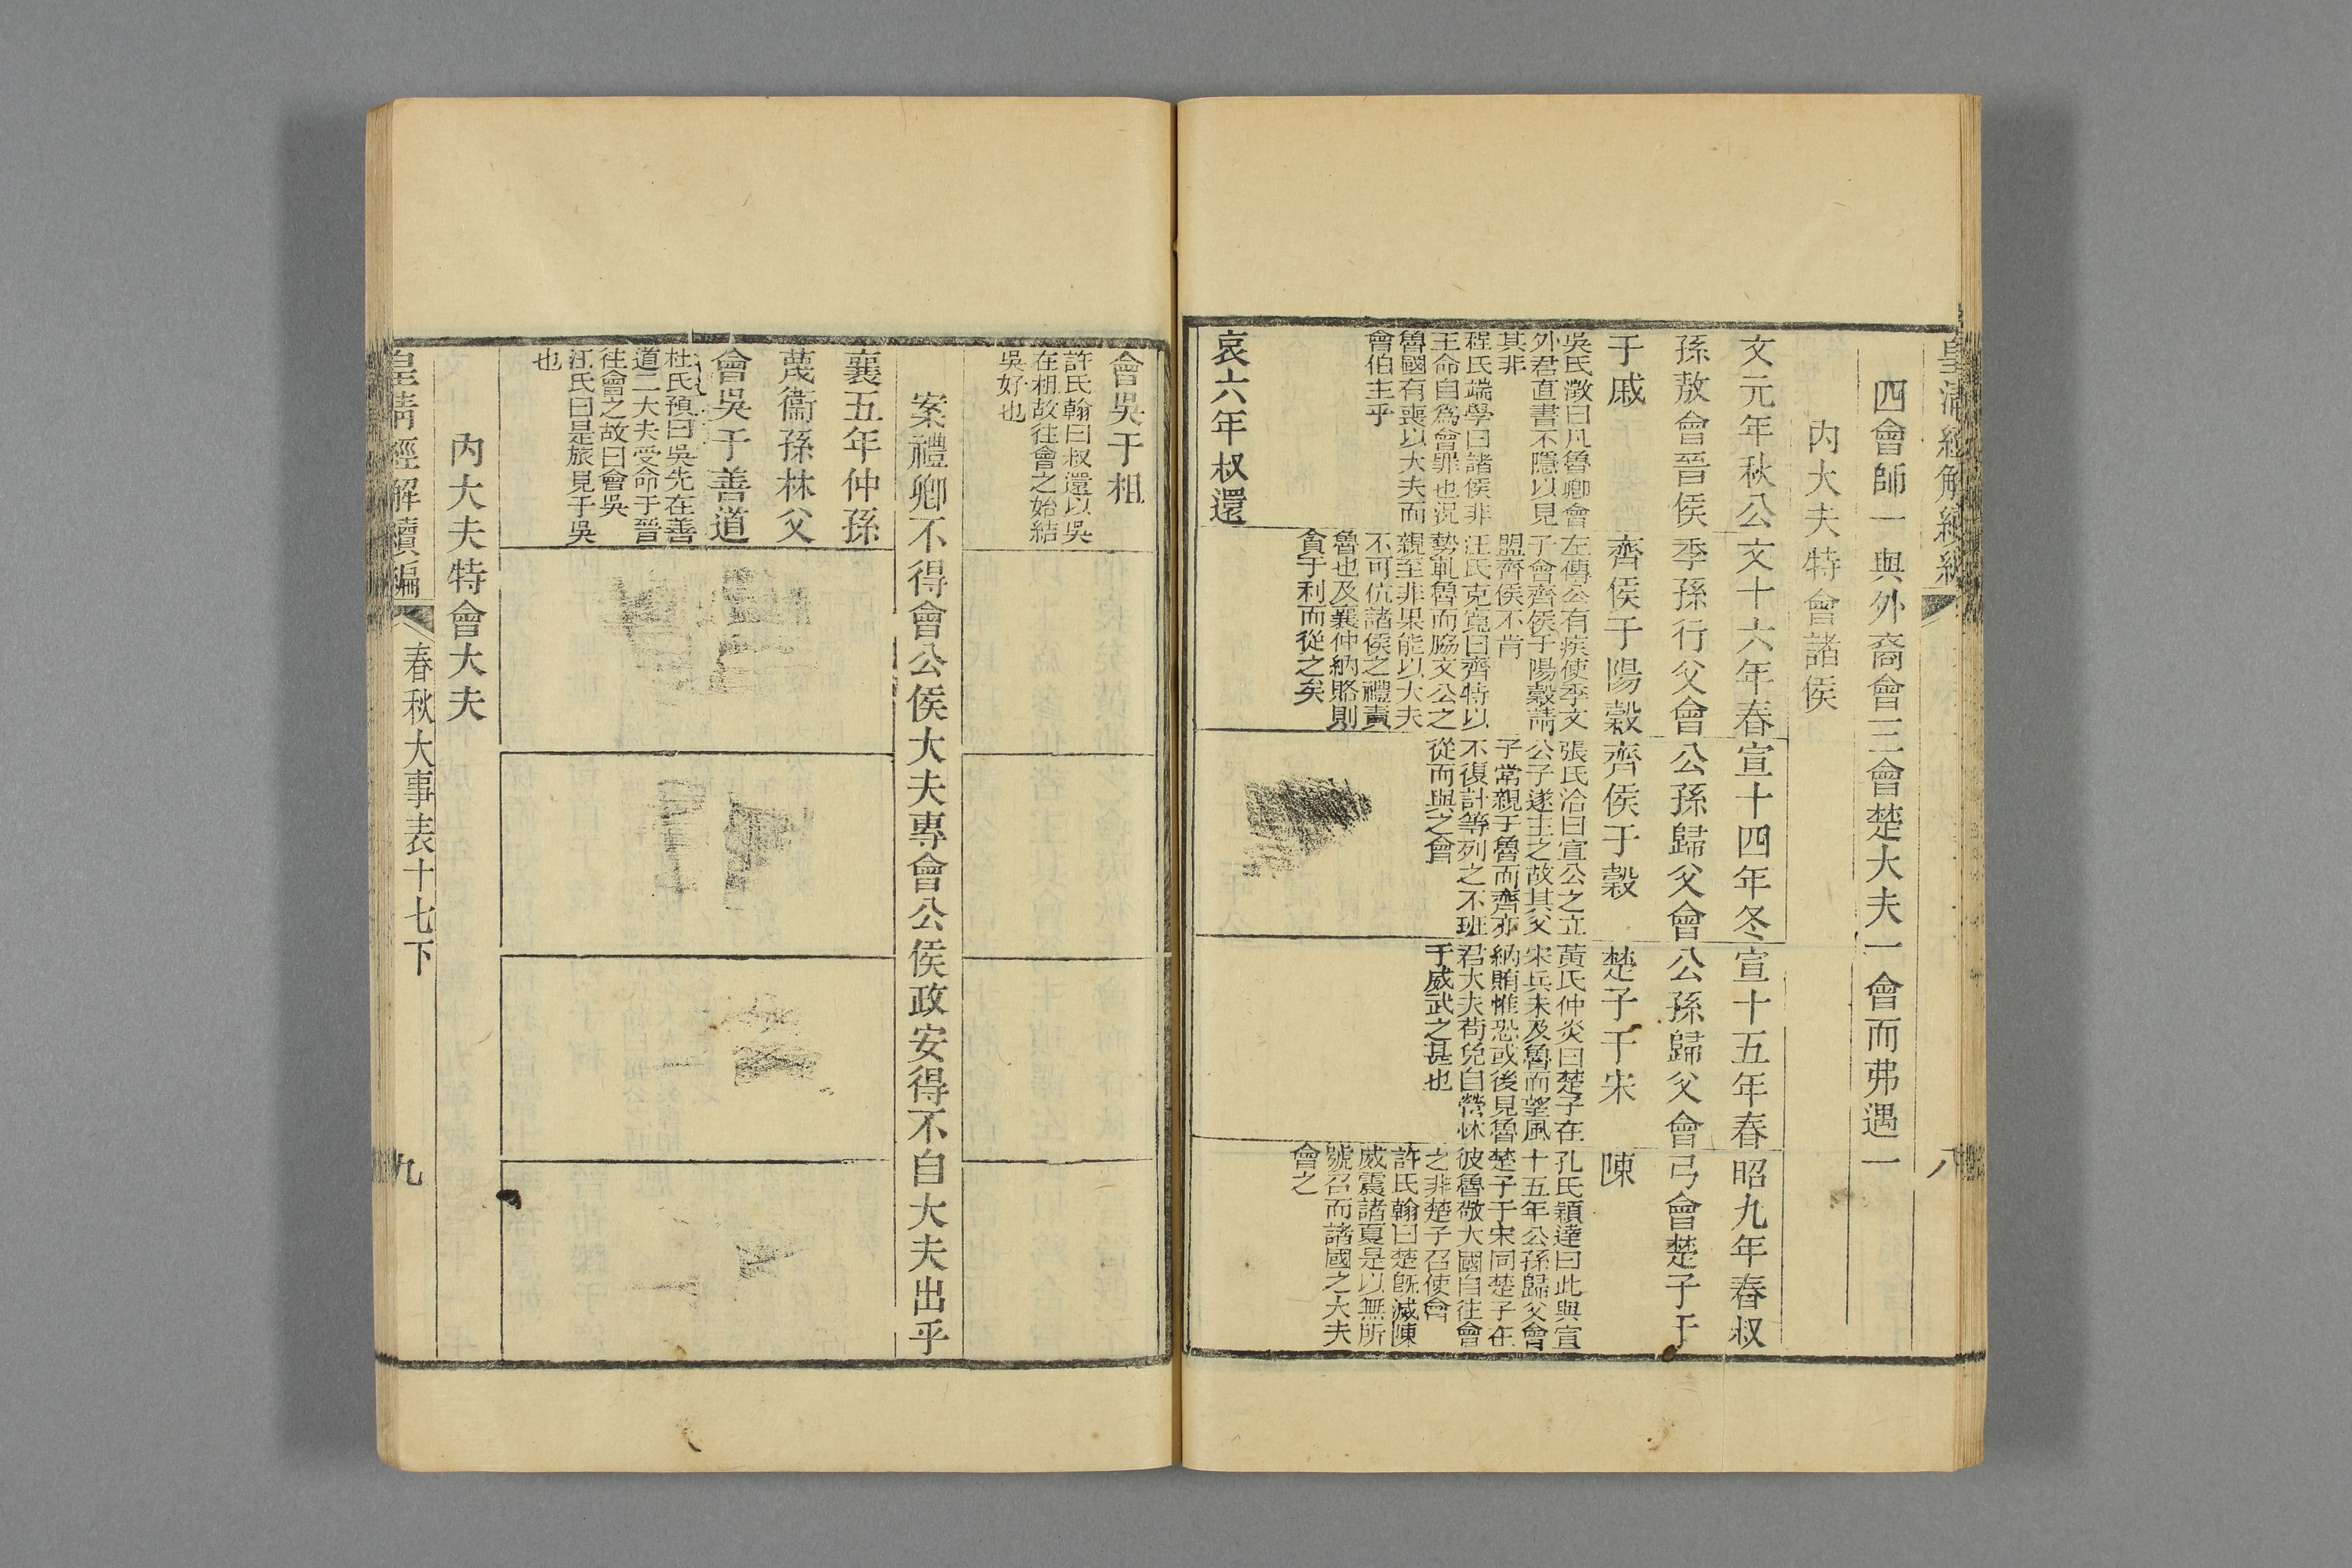 皇清經解續編
八
四會師一與外裔會三會楚大夫一會而弗遇一
內大夫特會諸侯
文元年秋公
孫敖會晉侯
于戚
吳氏澂曰凡魯卿會
外君直書不隱以見
其非
程氏端學曰諸侯非
王命自為會罪也況
魯國有喪以大夫而
會伯主乎
文十六年春
季孫行父會
齊侯于陽穀
左傳公有疾使季文
子會齊侯于陽穀請
盟齊侯不肯
汪氏克寬曰齊特以
勢軋魯而脇文公之
親至非果能以大夫
不可伉諸侯之禮責
魯也及襄仲納賂則
貪于利而從之矣
宣十四年冬
公孫歸父會
齊侯于穀
張氏洽曰宣公之立
公子遂主之故其父
子常親于魯而齊亦
不復計等列之不班
從而與之會
宣十五年春
公孫歸父會
楚子于宋
黃氏仲炎曰楚子在
宋兵未及魯而望風
納賄惟恐或後見魯
君大夫苟免自營怵
于威武之甚也
昭九年春叔
弓會楚子于
陳
孔氏穎達曰此與宣
十五年公孫歸父會
楚子于宋同楚子在
彼魯敬大國自往會
之非楚子召使會
許氏翰曰楚既滅陳
威震諸夏是以無所
號召而諸國之大夫
會之
哀六年叔還
會吳于柤
許氏翰曰叔還以吳
在柤故往會之始結
吳好也
案禮卿不得會公侯大夫專會公侯政安得不自大夫出乎
襄五年仲孫
蔑衞孫林父
會吳于善道
杜氏預曰吳先在善
道二大夫受命于晉
往會之故曰會吳
汪氏曰是旅見于吳
也
內大夫特會大夫
皇清經解續編
春秋大事表十七下
九